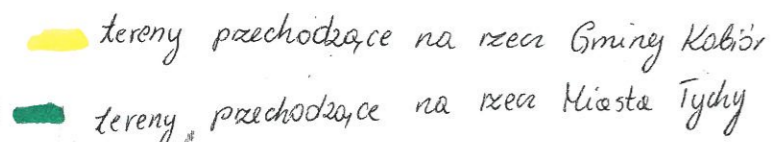 tereny przechodzące na rzecz Gminy Kobiór
tereny przechodzące na rzecz Miasta Tychy